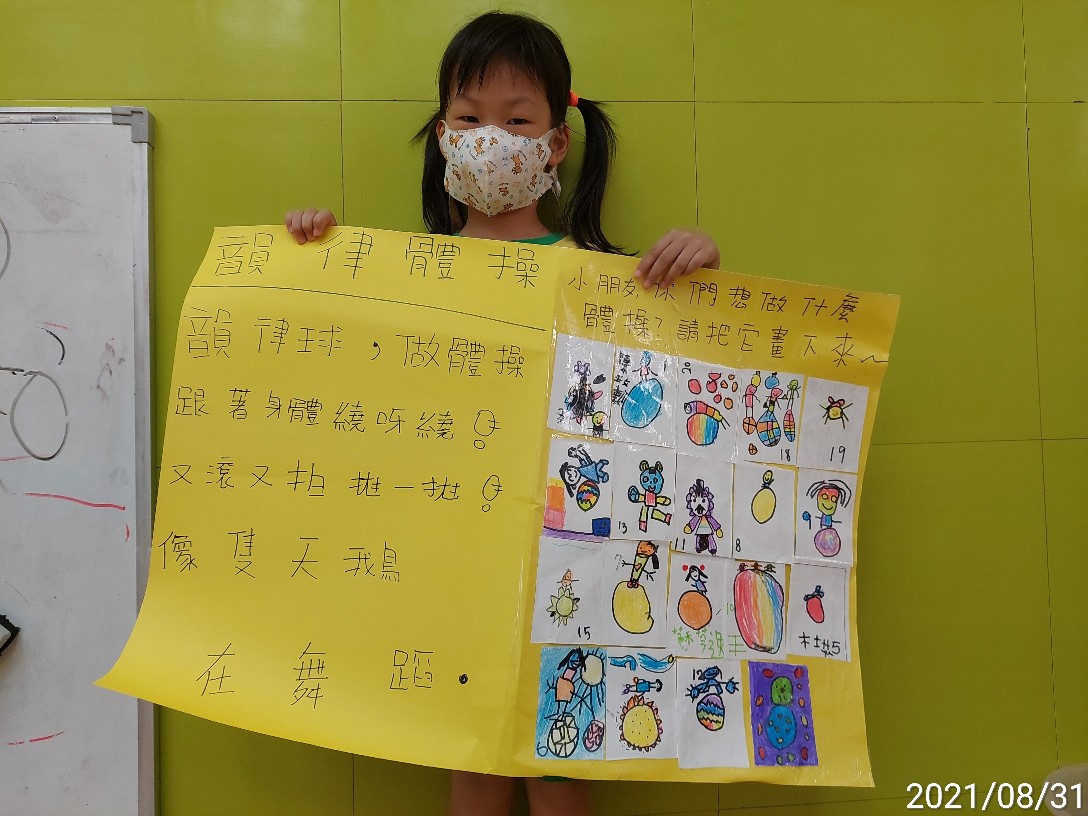 韻律體操
韻律球，做體操
跟著身體繞呀繞！
又滾又拍拋一拋！
像隻天鵝
在舞蹈。
小朋友你們想做什麼
體操？請把它畫下來～
18
19
13
11
8
9
15
7
10
5
12
2021/08/31